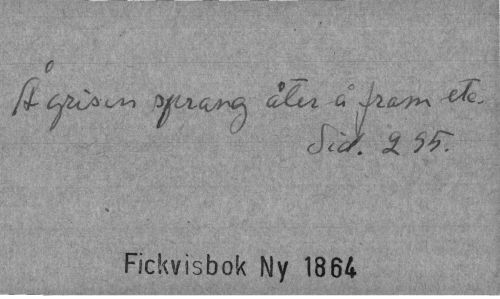 Å grisen sprang åter å fram etc.
Sid. 295.
Fickvisbok Ny 1864